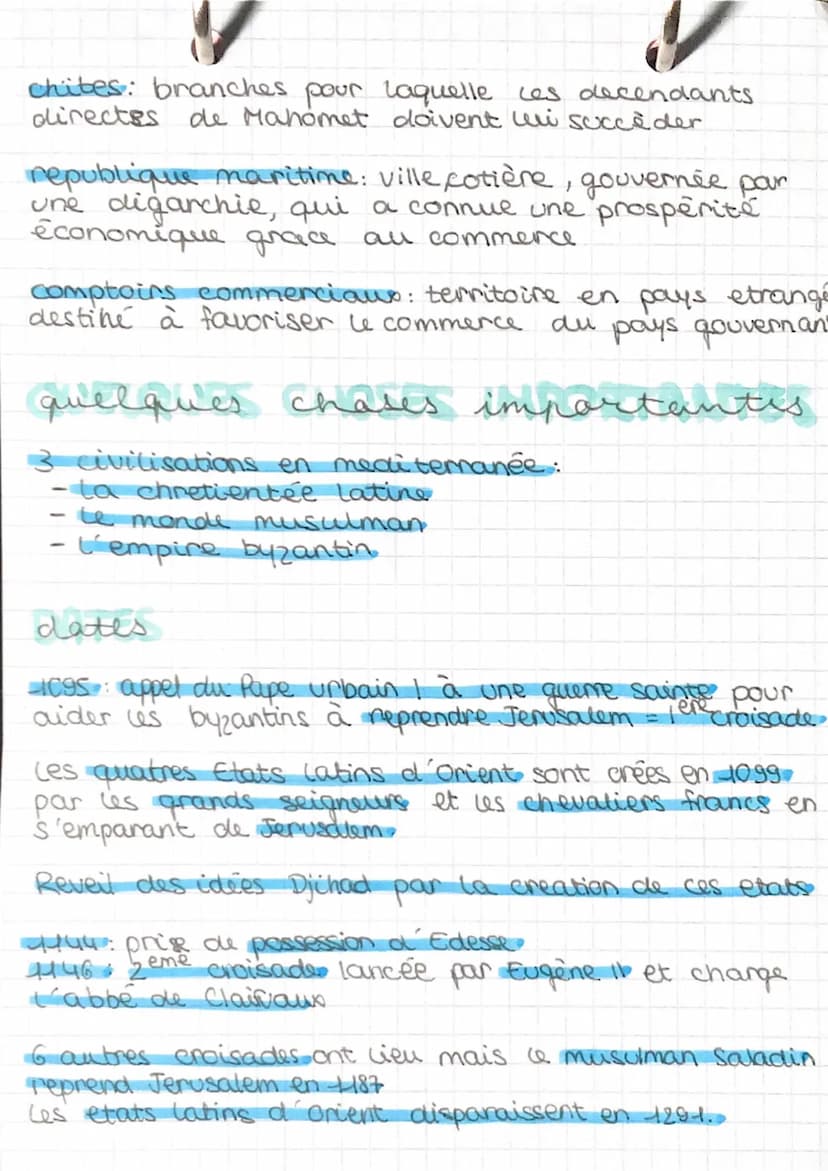 chiites: branches pour laquelle les decendants
directes de Mahomet doivent lui succèder
republique maritime: ville cotière, gouvernée par
une oligarchie, qui a connue une prospérité
économique grace au commerce
comptoirs commerciaux: territoire en pays etrangé
destiné à favoriser le commerce du pays gouvernant
quelques choses importantes
3 civilisations en mediterranée:
- la chretientée latine
- le monde musulman
- l'empire byzantin
dates
1095: appel du Pape urbain I à une guerre sainte pour
aider les byzantins à reprendre Jerusalem = 1ère croisade
Les quatres Etats latins d'Orient sont crées en 1099
par les grands seigneurs et les chevaliers francs en
s'emparant de Jerusalem
Reveil des idées Djihad par la creation de ces etats
1144: prise de possession d'Edesse
1146: 2ème croisade lancée par Eugène II et charge
l'abbé de Clairvaux
6 autres croisades ont lieu mais le musulman Saladin
reprend Jerusalem en 1187
Les etats latins d'Orient disparaissent en 1291.